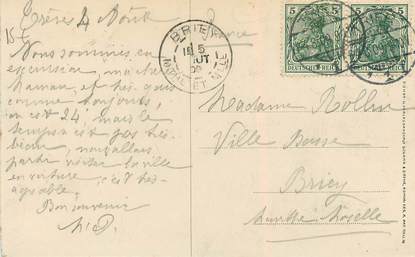 Trèves 4 Août
Nous sommes en
excursion, ma chère
Maman, et très gais
comme toujours,
on est 24, mais le
temps n'est pas très
bien, nous allons
partir visiter la ville
en voiture, c'est très
agréable.
Bon souvenir
France
BRIEY
5
09
MEURTHE ET MOSELLE
5 5
DEUTSCHES REICH
5 5
DEUTSCHES REICH
Madame Rollin
Ville Basse
Briey
Meurthe Moselle